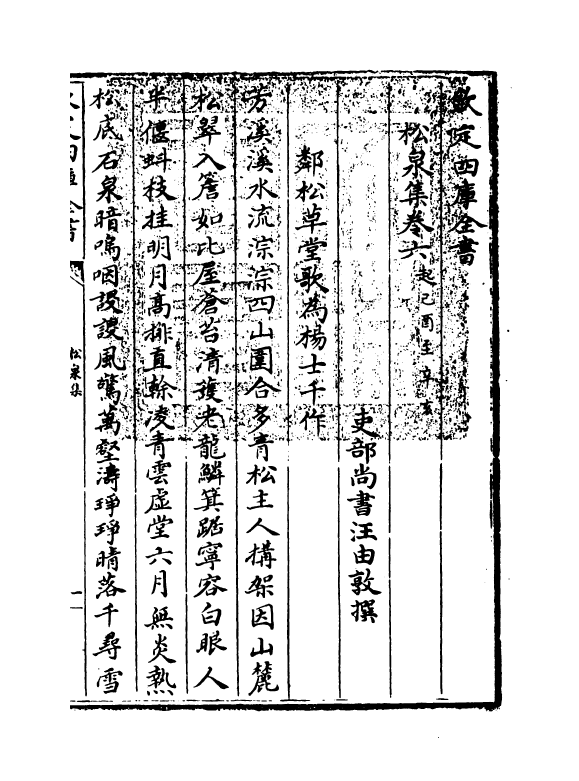 欽定四庫全書
松泉集卷六起己酉至辛亥
吏部尚書汪由敦撰
鄰松草堂歌為楊士千作
方溪溪水流淙淙四山圍合多青松主人搆架因山麓
松翠入簷如比屋蒼苔清護老龍鱗箕踞寧容白眼人
半偃蚪枝挂明月高排直榦凌青雲虛堂六月無炎熱
松底石泉暗嗚咽謖謖風驚萬壑濤琤琤晴落千尋雪
松泉集
一